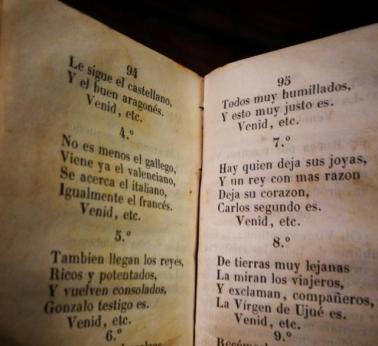 94
Le sigue el castellano,
Y el buen aragonés.
Venid, etc.
4.º
No es menos el gallego,
Viene ya el valenciano,
Se acerca el italiano,
Igualmente el francés.
Venid, etc.
5.º
Tambien llegan los reyes,
Ricos y potentados,
Y vuelven consolados,
Gonzalo testigo es.
Venid, etc.
6.º
95
Todos muy humillados,
Y esto muy justo es.
Venid, etc.
7.º
Hay quien deja sus joyas,
Y un rey con mas razon
Deja su corazon,
Carlos segundo es.
Venid, etc.
8.º
De tierras muy lejanas
La miran los viajeros,
Y exclaman, compañeros,
La Vírgen de Ujué es.
Venid, etc.
9.º